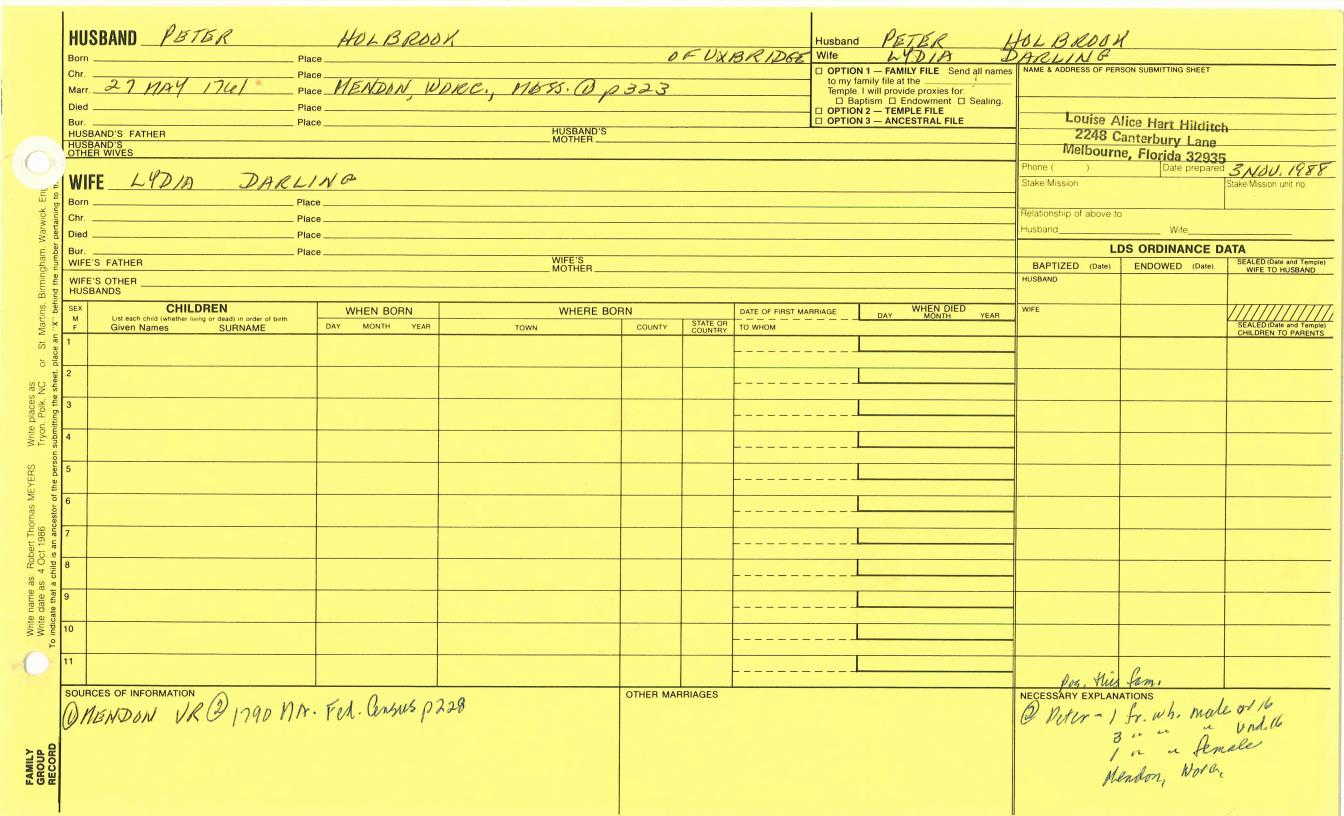 HUSBAND PETER HOLBROOK
Born Place OF UXBRIDGE
Chr. Place
Marr. 27 MAY 1761 Place MENDON, WORC., MASS. ① p323
Died Place
Bur. Place
HUSBAND'S FATHER HUSBAND'S MOTHER
HUSBAND'S OTHER WIVES
Husband PETER HOLBROOK
Wife LYDIA DARLING
☐ OPTION 1 — FAMILY FILE Send all names
to my family file at the
Temple. I will provide proxies for
☐ Baptism ☐ Endowment ☐ Sealing.
☐ OPTION 2 — TEMPLE FILE
☐ OPTION 3 — ANCESTRAL FILE
NAME & ADDRESS OF PERSON SUBMITTING SHEET
Louise Alice Hart Hilditch
2248 Canterbury Lane
Melbourne, Florida 32935
Phone ( ) Date prepared 3 NOV. 1988
Stake/Mission Stake/Mission unit no.
Relationship of above to
Husband Wife
WIFE LYDIA DARLING
Born Place
Chr. Place
Died Place
Bur. Place
WIFE'S FATHER WIFE'S MOTHER
WIFE'S OTHER HUSBANDS
LDS ORDINANCE DATA
BAPTIZED (Date) ENDOWED (Date) SEALED (Date and Temple) WIFE TO HUSBAND
HUSBAND
WIFE
SEALED (Date and Temple) CHILDREN TO PARENTS
SEX M F
CHILDREN
List each child (whether living or dead) in order of birth
Given Names SURNAME
WHEN BORN
DAY MONTH YEAR
WHERE BORN
TOWN COUNTY STATE OR COUNTRY
DATE OF FIRST MARRIAGE
TO WHOM
WHEN DIED
DAY MONTH YEAR
1
2
3
4
5
6
7
8
9
10
11
SOURCES OF INFORMATION
① MENDON VR ② 1790 MA. Fed. Census p228
OTHER MARRIAGES
Pos. this fam.
NECESSARY EXPLANATIONS
② Peter - 1 fr. wh. male ov 16
3 " " " und. 16
1 " " female
Mendon, Worc.
Write name as Robert Thomas MEYERS Write places as Tryon, Polk, NC or St Martins, Birmingham, Warwick,
Write date as 4 Oct 1986
To indicate that a child is an ancestor of the person submitting the sheet, place an "X" behind the number pertaining to
FAMILY
GROUP
RECORD